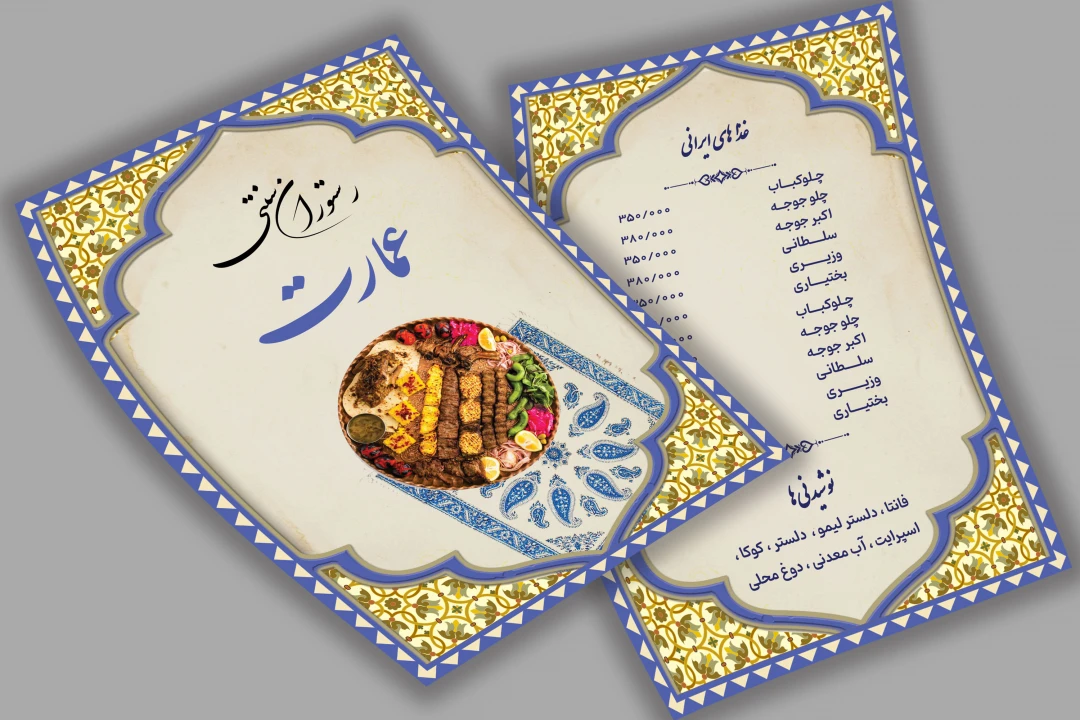 رستوران سنتی
عمارت
غذاهای ایرانی
چلوکباب ۳۵۰/۰۰۰
چلو جوجه ۳۸۰/۰۰۰
اکبر جوجه ۳۵۰/۰۰۰
سلطانی ۳۸۰/۰۰۰
وزیری ۳۵۰/۰۰۰
بختیاری /۰۰۰
چلوکباب ۰۰۰
چلو جوجه
اکبر جوجه
سلطانی
وزیری
بختیاری
نوشیدنی‌ها
فانتا، دلستر لیمو، دلستر، کوکا،
اسپرایت، آب معدنی، دوغ محلی